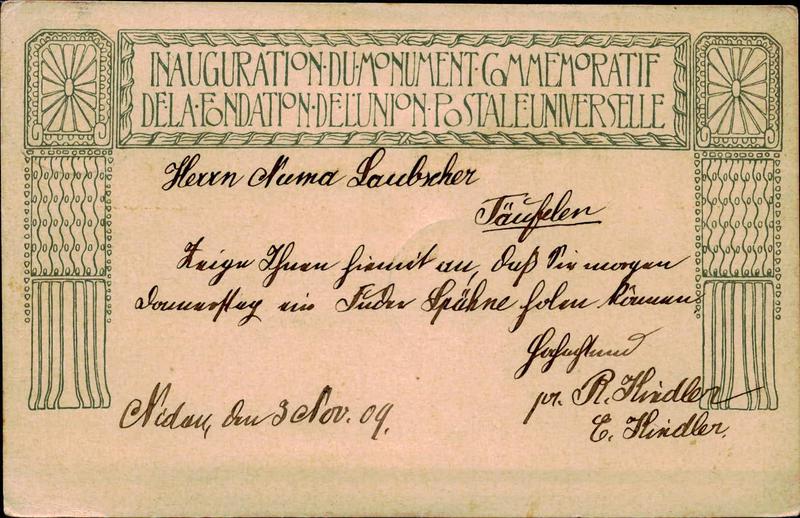 INAUGURATION·DU·MONUMENT·COMMEMORATIF
DE·LA·FONDATION·DE·L'UNION·POSTALE·UNIVERSELLE
Herrn Numa Laubscher
Täufelen
Zeige Ihnen hiemit an, daß Sie morgen
Donnerstag ein Fuder Spähne holen können.
Hochachtend
pr. R. Kindler
E. Kindler.
Nidau, den 3 Nov. 09.